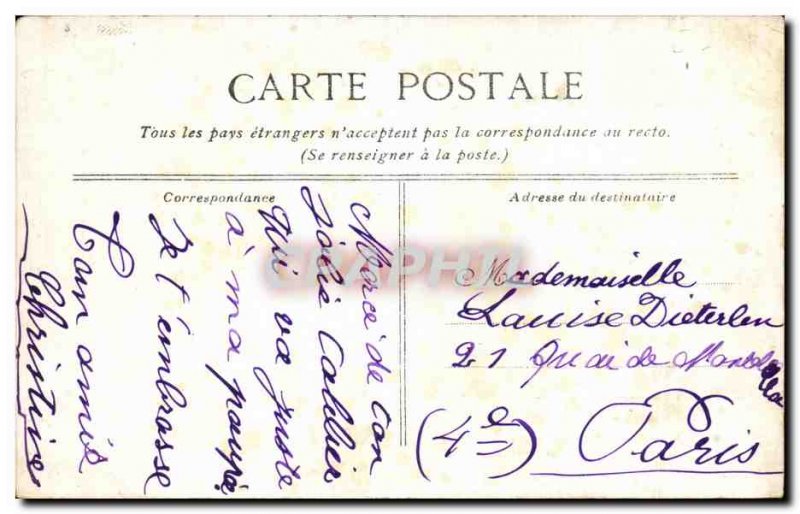 CARTE POSTALE
Tous les pays étrangers n'acceptent pas la correspondance au recto.
(Se renseigner à la poste.)
Correspondance
Merci de ton
jolie
qui va juste
à ma poupé
Je t'embrasse
Ton amie
Christine
Adresse du destinataire
Mademoiselle
Louise Dieterlen
21 Quai de
(4e)
Paris